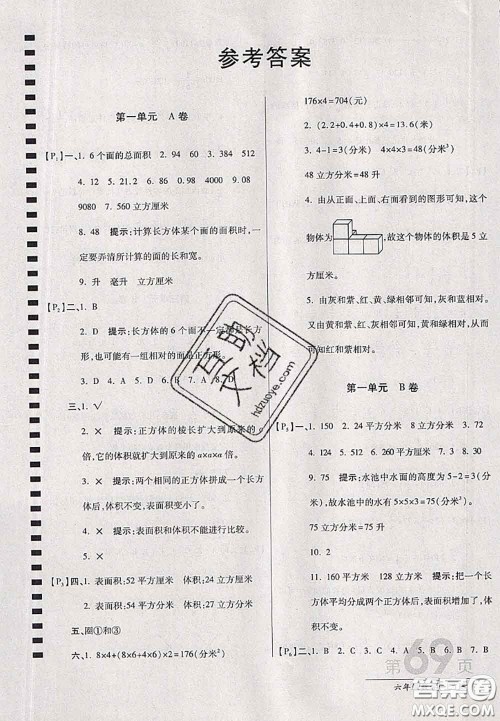 参考答案
第一单元 A卷
【P₁】一、1. 6个面的总面积 2. 94 60 3. 384 512
4. 12 5. 21 6. 0.93 930 69000 0.069
9080 7. 560立方厘米
8. 48 提示:计算长方体某个面的面积时,一
定要弄清所计算的面的长和宽。
9. 升 毫升 立方厘米
【P₂】二、1. B
2. D 提示:长方体的6个面不一定都是长方
形,也可能有一组相对的面是正方形。
3. D 4. A 5. B 6. A 7. A 8. D
三、1. √
2. × 提示:正方体的棱长扩大到原来的a
倍,它的体积就扩大到原来的a×a×a倍。
3. × 提示:两个相同的正方体拼成一个长方
体后,体积不变,表面积变小了。
4. × 提示:表面积和体积不能进行比较。
5. ×
【P₃】四、1. 表面积:52平方厘米 体积:24立方厘米
2. 表面积:54平方厘米 体积:27立方厘米
五、圈①和③
六、1. 8×4+(8×6+4×6)×2=176(平方分米)
176×4=704(元)
2. (2.2+0.4+0.8)×4=13.6(米)
3. 4-1=3(分米) 4×4×3=48(立方分米)
48立方分米=48升
4. 由从正面、上面、右面看到的图形可知,这个
物体为 ,故这个物体的体积是5立
方厘米。
5. 由灰和紫、红、黄、绿相邻可知,灰和蓝相对。
又由红和灰、蓝、黄、紫相邻可知,红和绿相对,
因此黄和紫相对。
第一单元 B卷
【P₅】一、1. 150 2. 24平方分米 8立方分米 3. 72
4. 124 5. 500 6. 125 7. 30 8. 3.2
9. 75 提示:水池中水面的高度为5-2=3(分
米),故水池中水的体积为5×5×3=75(分米³)
75立方分米=75升
10. 2
11. 160平方厘米 128立方厘米 提示:把一个长
方体平均分成两个正方体后,表面积增加了,
体积不变。
【P₆】二、1. B 2. D 3. C 4. C 5. A 6. A
第69页
六年
互助文档
hdzuoye.com
答案圈
MXQE.COM